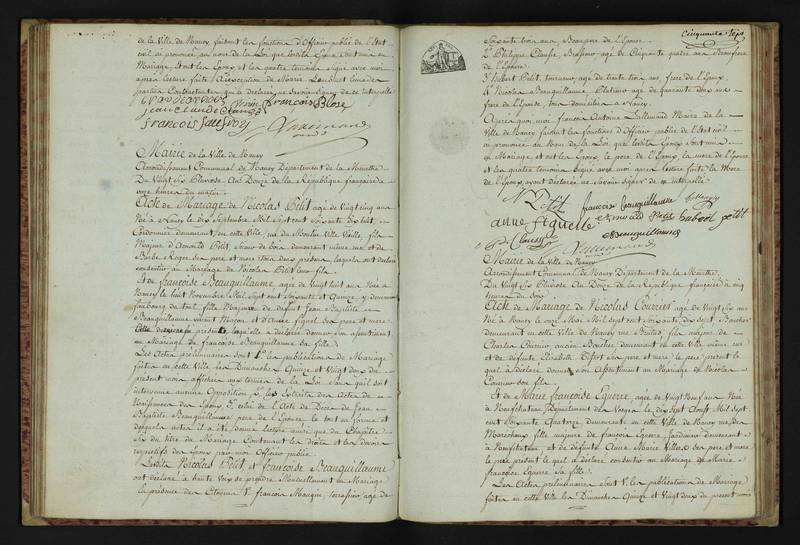 de la Ville de Nancy faisant les fonctions d'Officier public de l'Etat
civil ai prononcé au nom de la Loi que lesdits Epoux sont unis en
Mariage, et ont les Epoux et les quatre temoins signé avec moi
après lecture faite
parties Contractantes qui a déclaré ne savoir signer de ce interpellé
françois Blose
jean claude
françois
Mairie de la Ville de Nancy
Arrondissement Communal de Nancy Département de la Meurthe
Du Vingt Six Pluviose An Douze de la République française à
onze heures du matin
Acte de Mariage de Nicolas Petit agé de Vingt cinq ans
Né à Nancy le dix Septembre Mil Sept cent Soixante dix huit,
Cordonnier demeurant en cette Ville, rue du Moulin Ville Vieille, fils
Majeur d'Arnould Petit, demeurant même rue et de
Barbe Roger ses pere et mere tous deux présens, lesquels ont déclaré
consentir au Mariage de Nicolas Petit leur fils
Et de françoise Beauquillaume, agée de Vingt huit ans Née à
Nancy le huit Novembre Mil Sept cent Soixante et Quinze, y demeurant
faubourg fille Majeure de défunt Jean Baptiste
Beauquillaume et d'Anne figuel ses pere et mere
Cette présente, laquelle a déclaré donner son consentement
au Mariage de françoise Beauquillaume sa fille
Les Actes preliminaires sont 1° les publications de Mariage
faites en cette Ville les Dimanches Quinze et Vingt deux du
présent mois affichées aux termes de la Loi sans qu'il soit
intervenu aucune Opposition 2° les Extraits des Actes de
Naissances des Epoux 3° celui de l'Acte de Décès de Jean
Baptiste Beauquillaume pere de l'Epouse le tout en forme et
desquels actes il a été donné lecture ainsi que du Chapitre
Six du titre du Mariage Contenant les droits et les devoirs
respectifs des Epoux par moi Officier public
Lesdits Nicolas Petit et françoise Beauquillaume
ont déclaré à haute Voix se prendre Mutuellement en Mariage
la présence des Citoyens 1° francois Mangin, terrassier, agé de
Cinquante Sept
Soixante trois ans Beaupere de l'Epoux
2° Philippe Clausse, agé de Cinquante quatre ans
de l'Epouse
3° hubert Petit, tourneur, agé de trente trois ans, frere de l'Epoux
4° Nicolas Beauquillaume, Platrier agé de quarante deux ans
frere de l'Epouse, tous domiciliés à Nancy.
Après quoi moi françois Antoine Lallemand Maire de la
Ville de Nancy faisant les fonctions d'Officier public de l'Etat civil
ai prononcé au Nom de la Loi que lesdits Epoux sont unis
en Mariage et ont les Epoux, le pere de l'Epoux, la mere de l'Epouse
et les quatre temoins signé avec moi après lecture faite la Mere
de l'Epoux ayant déclaré ne savoir signer de ce interpellé
N Petit françoise Beauquillaume
anne figuelle arnould Petit hubert petit
P. Clausse n Beauquillaume
Mairie de la Ville de Nancy
Arrondissement Communal de Nancy Département de la Meurthe.
Du Vingt Six Pluviose An Douze de la République française à cinq
heures du soir
Acte de Mariage de Nicolas Courrier agé de Vingt Six ans
Né à Nancy le onze Mil Sept cent Soixante dix Sept Boucher
demeurant en cette Ville de Nancy rue fils majeur de
Charles Courrier ancien Boucher demeurant en cette Ville même rue
et de défunte Elisabeth ses pere et mere le pere présent le
quel a déclaré donner son consentement au Mariage de Nicolas
Courrier son fils
Et de Marie françoise Equerre, agée de Vingt Neuf ans Née
à Neufchateau, Département des Vosges le dix Sept Aout Mil Sept
cent Soixante Quatorze demeurante en cette Ville de Nancy rue des
Marechaux, fille majeure de francois Equerre, Jardinier demeurant
à Neufchateau, et de défunte Anne Marie ses pere et mere
le pere présent le quel a déclaré consentir au Mariage de Marie
françoise Equerre sa fille.
Les Actes préliminaires sont 1° les publications de Mariage
faites en cette Ville les Dimanches Quinze et Vingt deux du présent mois